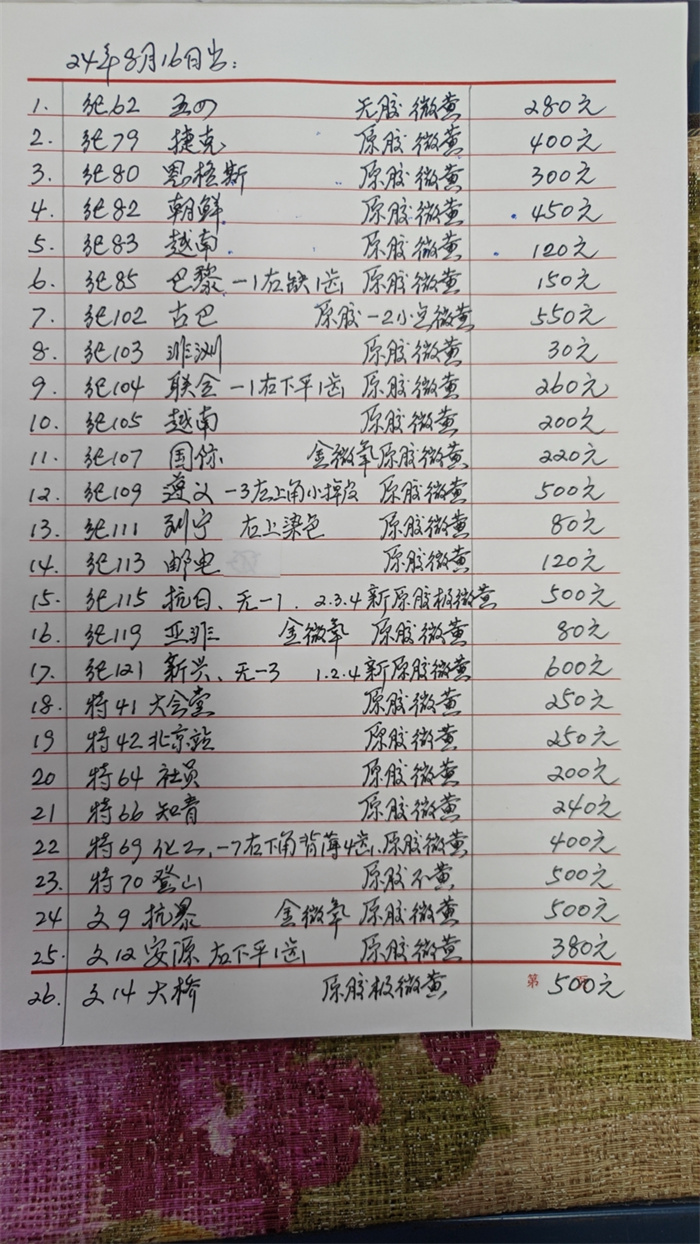 24年8月16日出:
1. 纪62 五四 无胶微黄 280元
2. 纪79 捷克 原胶微黄 400元
3. 纪80 恩格斯 原胶微黄 300元
4. 纪82 朝鲜 原胶微黄 450元
5. 纪83 越南 原胶微黄 120元
6. 纪85 巴黎 -1右缺1齿 原胶微黄 150元
7. 纪102 古巴 原胶-2小点微黄 550元
8. 纪103 非洲 原胶微黄 30元
9. 纪104 联合 -1右下平1齿 原胶微黄 260元
10. 纪105 越南 原胶微黄 200元
11. 纪107 国际 金微氧原胶微黄 220元
12. 纪109 遵义 -3左上角小掉皮 原胶微黄 500元
13. 纪111 列宁 右上染色 原胶微黄 80元
14. 纪113 邮电 原胶微黄 120元
15. 纪115 抗日、无-1. 2.3.4新原胶极微黄 500元
16. 纪119 亚非 金微氧 原胶微黄 80元
17. 纪121 新兴、无-3 1.2.4新原胶微黄 600元
18. 特41 大会堂 原胶微黄 250元
19 特42 北京站 原胶微黄 250元
20 特64 社员 原胶微黄 200元
21 特66 知青 原胶微黄 240元
22 特69 化工,-7右下角背薄4齿.原胶微黄 400元
23. 特70 登山 原胶不黄 500元
24 文9 抗暴 金微氧 原胶微黄 500元
25. 文12 安源 左下平1齿 原胶微黄 380元
26. 文14 大桥 原胶极微黄 第 500元